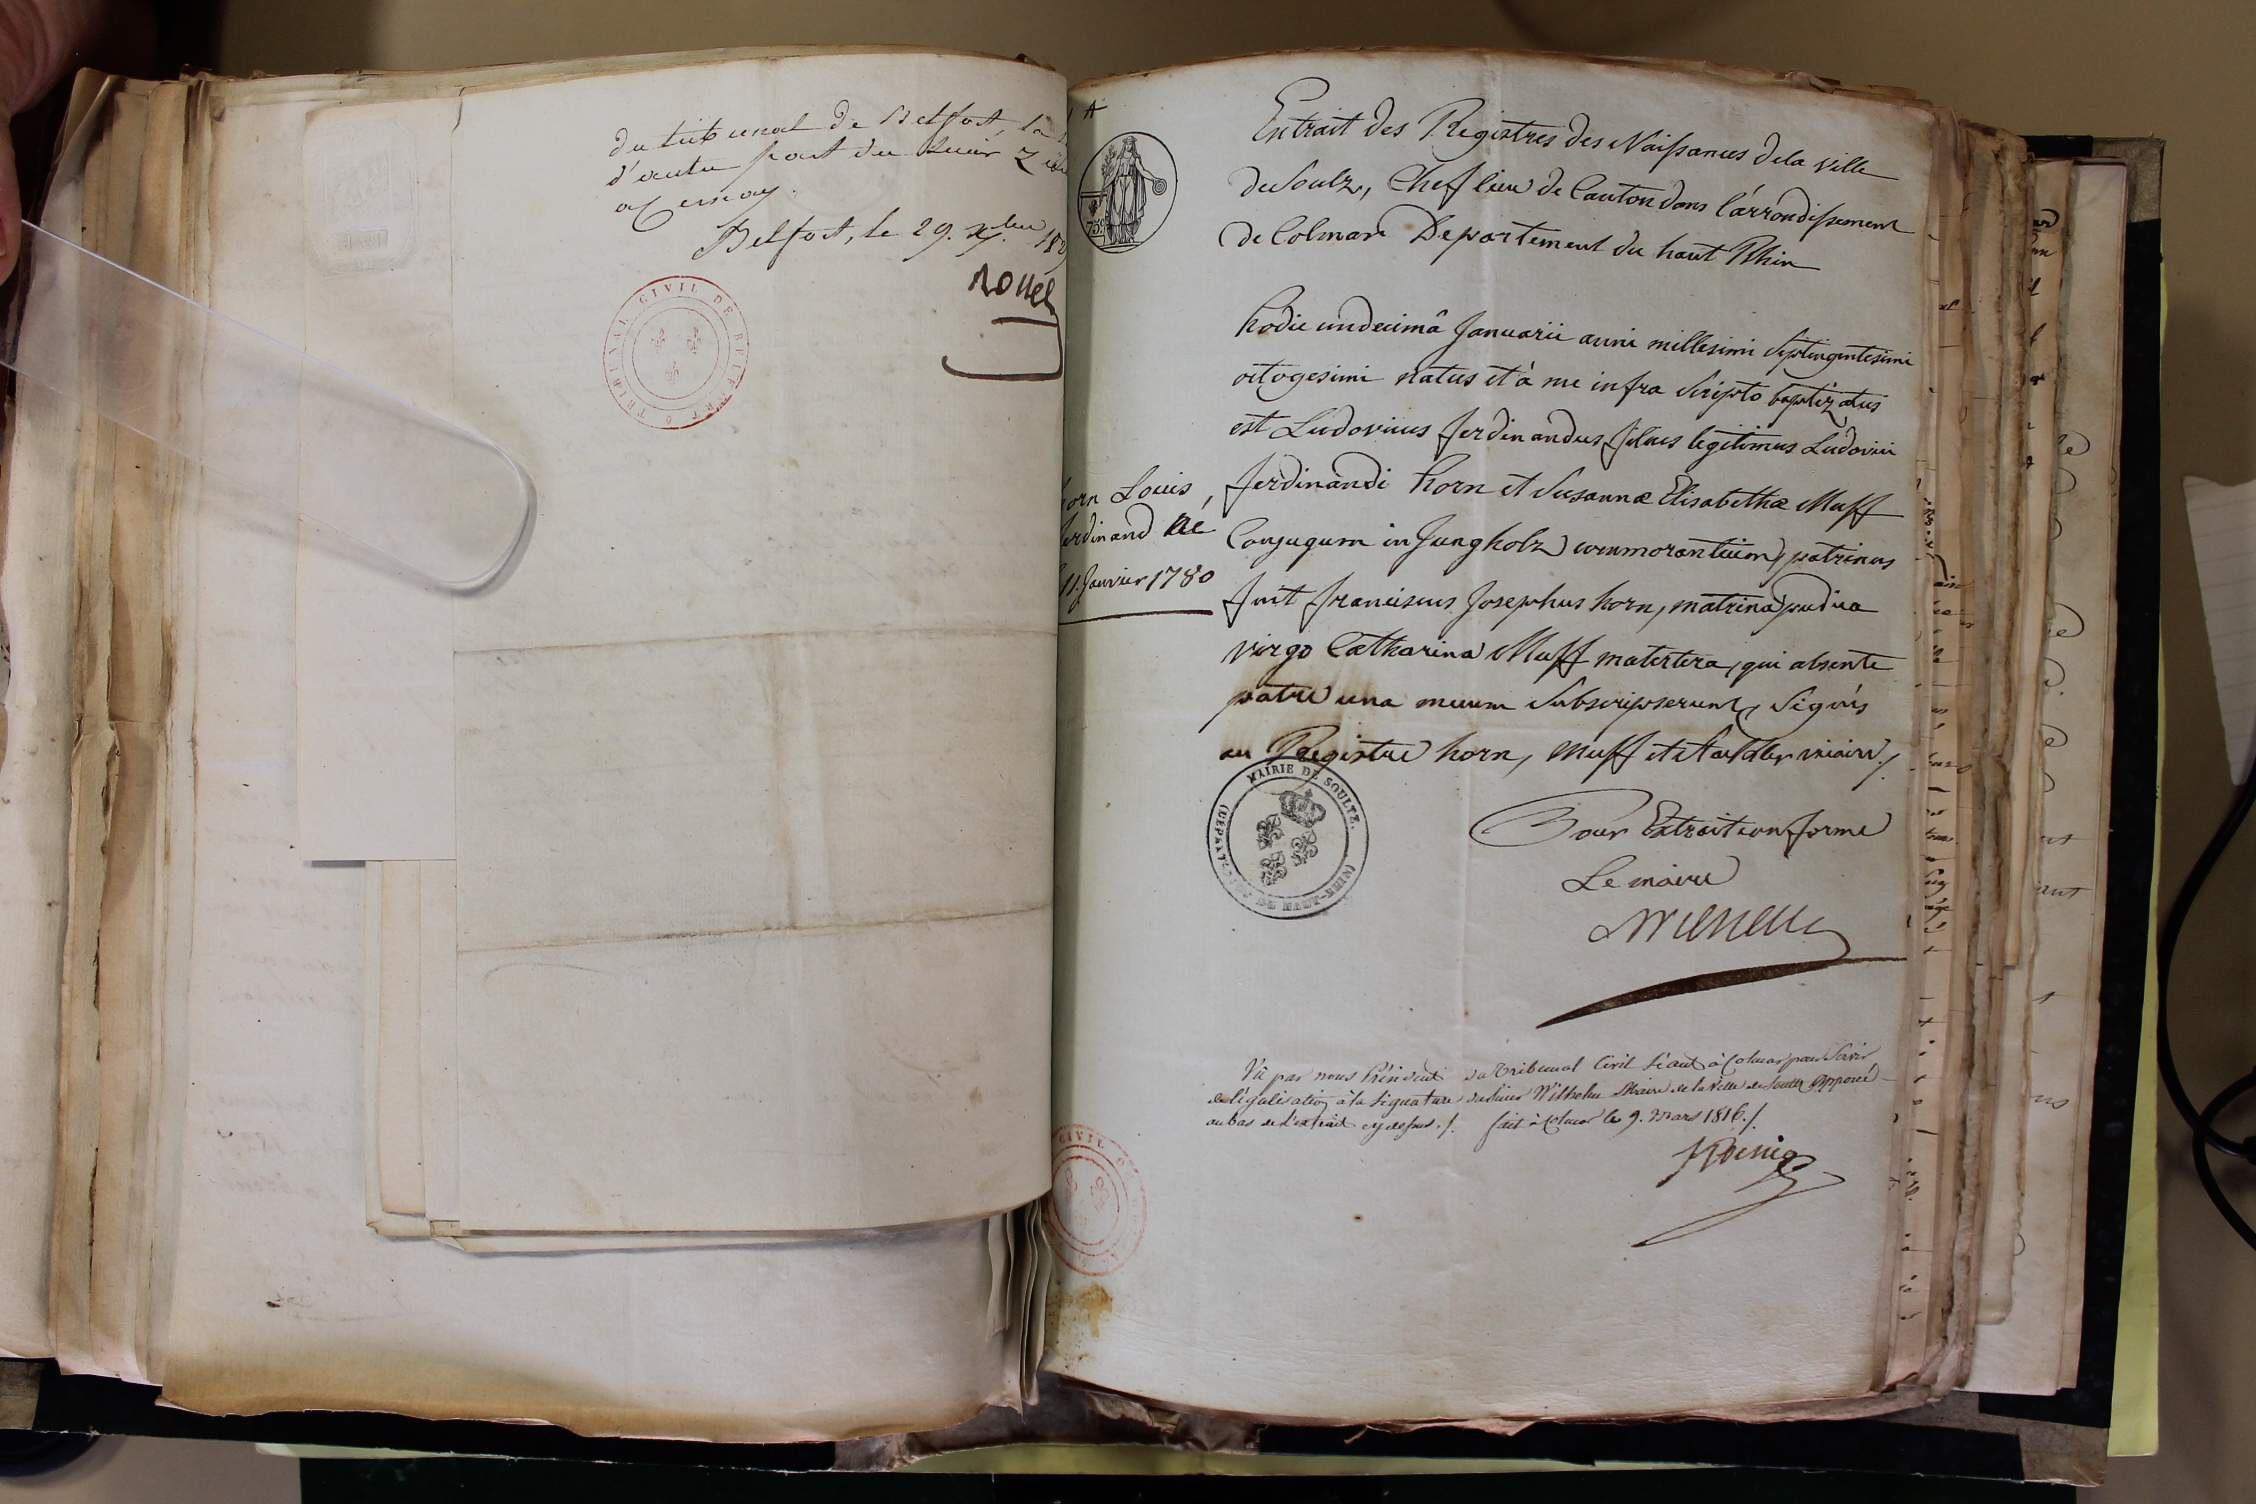 du tribunal de Belfort, la
d'autre part du Sieur
a Cernay.
Belfort, le 29. Xbre 182
TRIBUNAL CIVIL DE BELFORT
A
75c
Extrait des Registres des Naissances de la ville
de Soultz, Chef lieu de Canton dans l'arrondissement
de Colmar Departement du haut Rhin
horn Louis,
ferdinand né
11. Janvier 1780
hodie undecimâ Januarii anni millesimi Septingentesimi
octogesimi natus et à me infra Scripto baptizatus
est Ludovicus ferdinandus filius legitimus Ludovici
ferdinandi horn et Susannæ Elisabethæ Muff
Conjugum in Jungholz commorantium, patrinus
fuit franciscus Josephus horn, matrina pudica
virgo Catharina Muff matertera, qui absente
patre una mecum Subscripserunt, Signés
au Registre horn, Muff et vicaire ./.
MAIRIE DE SOULTZ.
(DEPARTEMENT DU HAUT-RHIN)
Pour Extrait conforme
Le maire
Vû par nous Président du Tribunal Civil Séant à Colmar pour Servir
de légalisation à la Signature du Sieur Wilhelm Maire de la Ville de Soultz apposée
au bas de l'extrait cy dessus ./. fait à Colmar le 9. Mars 1816 ./.
Koenig
CIVIL D